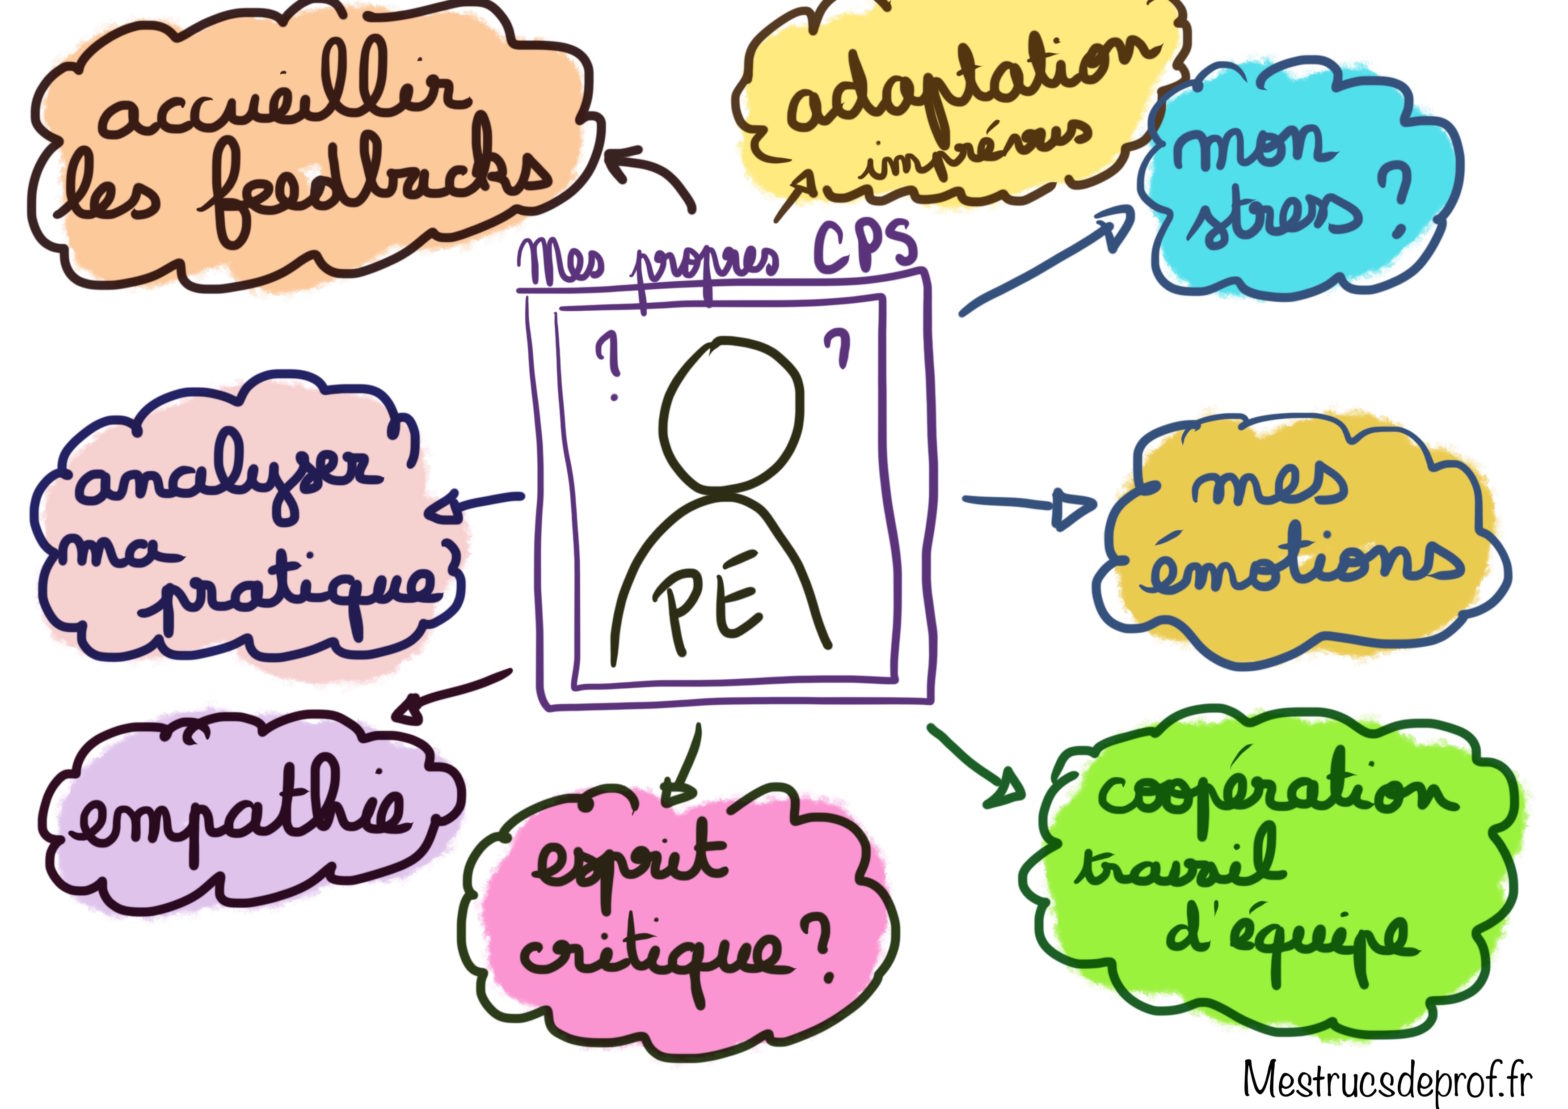 accueillir
les feedbacks
adaptation
imprévus
mon
stress ?
Mes propres CPS
? ?
PE
analyser
ma
pratique
mes
émotions
empathie
esprit
critique ?
coopération
travail
d'équipe
Mestrucsdeprof.fr